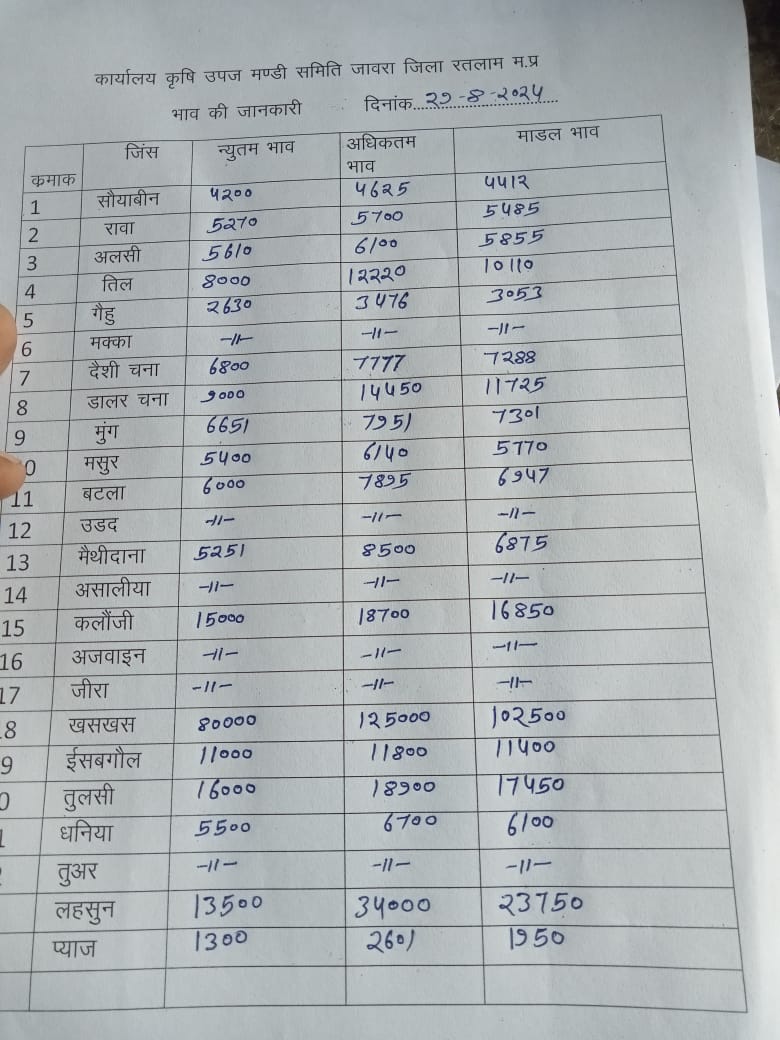 कार्यालय कृषि उपज मण्डी समिति जावरा जिला रतलाम म.प्र
भाव की जानकारी दिनांक 29-8-2024
कमाक जिंस न्युतम भाव अधिकतम भाव माडल भाव
1 सौयाबीन 4200 4625 4412
2 रावा 5270 5700 5485
3 अलसी 5610 6100 5855
4 तिल 8000 12220 10110
5 गैहु 2630 3476 3053
6 मक्का -11- -11- -11-
7 दैशी चना 6800 7777 7288
8 डालर चना 9000 14450 11725
9 मुंग 6651 7951 7301
0 मसुर 5400 6140 5770
11 बटला 6000 7895 6947
12 उडद -11- -11- -11-
13 मैथीदाना 5251 8500 6875
14 असालीया -11- -11- -11-
15 कलौंजी 15000 18700 16850
16 अजवाइन -11- -11- -11-
17 जीरा -11- -11- -11-
8 खसखस 80000 125000 102500
9 ईसबगौल 11000 11800 11400
0 तुलसी 16000 18900 17450
धनिया 5500 6700 6100
तुअर -11- -11- -11-
लहसुन 13500 34000 23750
प्याज 1300 2601 1950